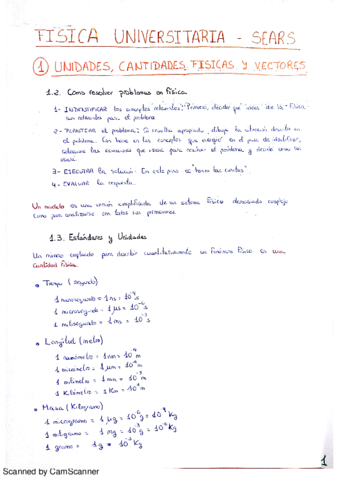 FISICA UNIVERSITARIA - SEARS
1 UNIDADES, CANTIDADES FISICAS Y VECTORES
1.2. Como resolver problemas en Física.
1- IDENTIFICAR los conceptos relevantes: Primero, decidir que ideas de la Física
son relevantes para el problema
2- PLANTEAR el problema: Si resulta apropiado, dibuje la situación descrita en
el problema. Con base en los conceptos que en el paso de identificar,
seleccione las ecuaciones que para resolver el problema y decida como las
usara.
3- EJECUTAR la solución: En este paso se "hacen las cuentas"
4- EVALUAR la respuesta.
Un modelo es una versión simplificada de un sistema físico demasiado complejo
como para analizarse con todos sus pormenores.
1.3. Estándares y Unidades
Un número empleado para describir cuantitativamente un fenómeno físico es una
Cantidad física.
• Tiempo (segundo)
1 = 1 ns = 10 s
1 microsegundo = 1 μs = 10⁻⁶ s
1 milisegundo = 1 ms = 10⁻³ s
• Longitud (metro)
1 nanómetro = 1 nm = 10 m
1 = 1 μm = 10 m
1 milímetro = 1 mm = 10⁻³ m
1 Kilómetro = 1 Km = 10 m
• Masa (Kilogramo)
1 microgramo = 1 μg = 10⁻⁶ g = 10 Kg
1 miligramo = 1 mg = 10⁻³ g = 10 Kg
1 gramo = 1 g = 10 Kg
1
Scanned by CamScanner